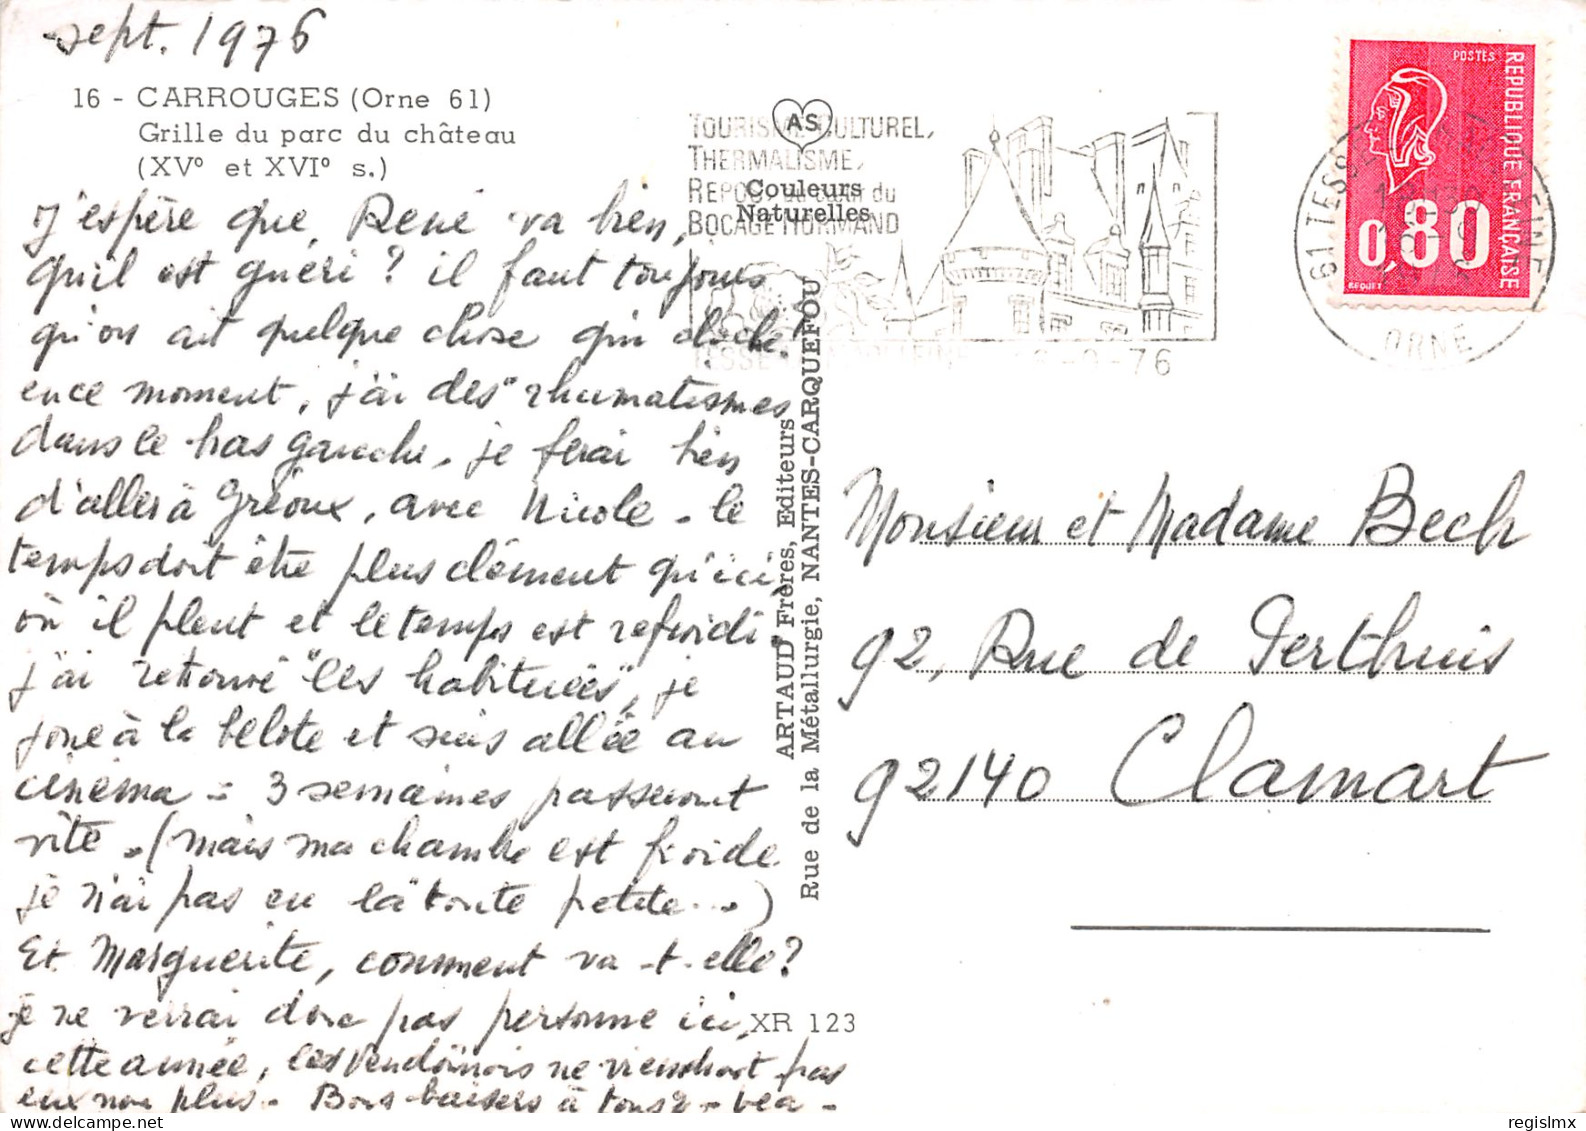 sept. 1976
16 - CARROUGES (Orne 61)
Grille du parc du château
(XV° et XVI° s.)
J'espère que René va bien,
qu'il est guéri ? il faut toujours
qu'on ait quelque chose qui cloche!
ence moment, j'ai des "rhumatismes
dans le bas gauche, je ferai bien
d'aller à Gréoux, avec Nicole - le
temps doit être plus clément qu'ici,
où il pleut et le temps est refroidi.
j'ai retrouvé "les habituées", je
joue à la belote et suis allée au
cinéma - 3 semaines passeront
vite - (mais ma chambre est froide
je n'ai pas eu la toute petite...)
Et Marguerite, comment va-t-elle?
je ne verrai donc pas personne ici,
cette année, les Vendômois ne viendront pas
eux non plus - Bons baisers à tous 2 -
AS
Couleurs
Naturelles
ARTAUD Frères, Editeurs
Rue de la Métallurgie, NANTES-CARQUEFOU
XR 123
TOURISME CULTUREL,
THERMALISME,
REPOS au cœur du
BOCAGE NORMAND
-76
POSTES
REPUBLIQUE FRANÇAISE
0,80
BEQUET
61 TESSE
ORNE
Monsieur et Madame Bech
92, Rue de Perthuis
92140 Clamart
regislmx